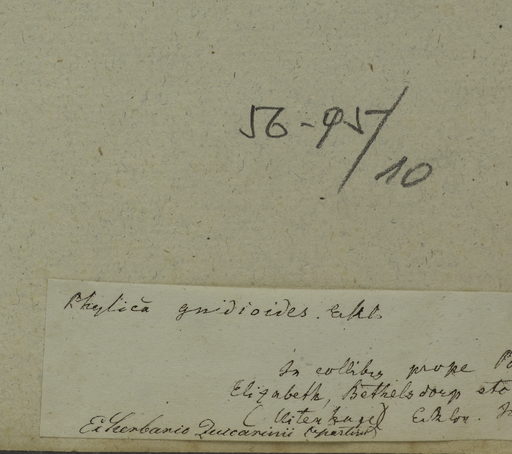 56-95/10
Phylica gnidioides. E&Z.
In collibus prope Po
Elizabeth, Bethelsdorp etc
(Uitenhage) Ecklon.
Ex herbario Zuccarinii